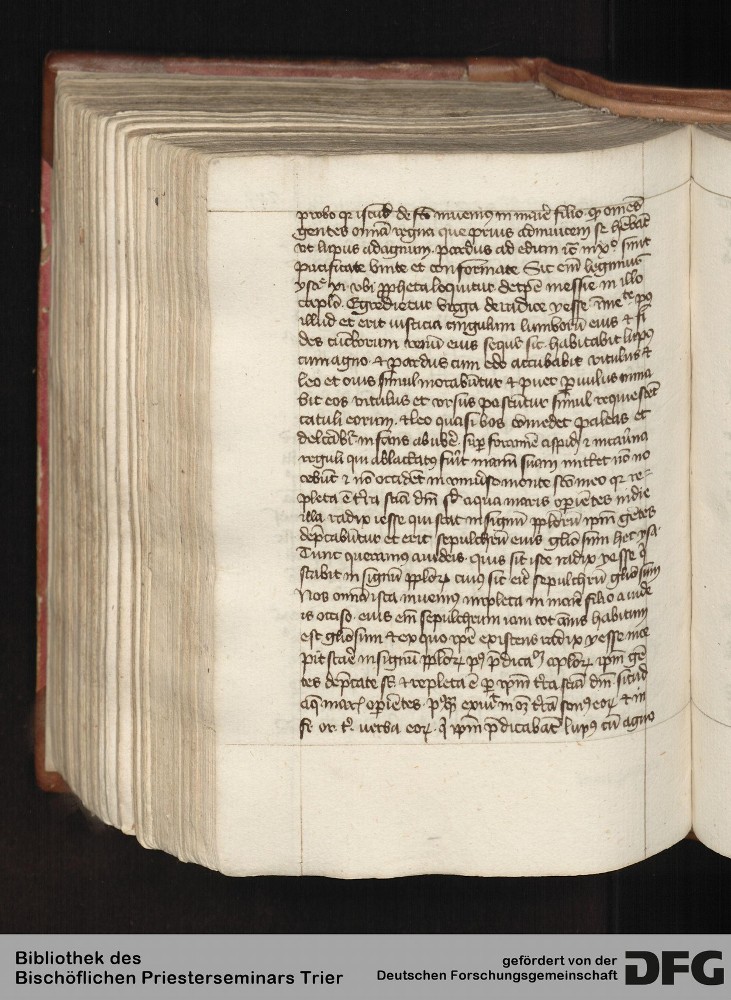 probo qr iscud de fco inuenio in marie filio. qr omnes
gentes omnia regna que prius adinuicem se hebat
vt lupus ad agnum. pardus ad edum ic in xo sunt
pacificate vnite et conformate. Sic em legimus
ysa xi. vbi ppheta loquitur de tpe messie in illo
caplo. Egredietur virga de radice yesse
illud et erit iusticia cingulum lumborum eius & fi
des cinctorium renum eius sequr sic. habitabit lup9
cum agno. & pardus cum edo accubabit vitulus &
leo et ouis simul morabuntur & puer puulus mina
bit eos vitulus et vrsus pascentur simul requiescet
catuli eorum. & leo quasi bos comedet paleas et
delcabr infans ab vbe. supr foramen aspidis & in cauna
reguli qui ablactatus fuit manu suam mittet non no
cebut & non occidet in vniuso monte sco meo qr re-
pleta e tra scia dni sic aqua maris operientes in die
illa radix iesse qui stat in signum pplorum ipm gentes
depcabuntur et erit sepulchrum eius gliosum hec ysa.
Tunc queramus a iudeis. quis sit iste radix yesse q
stabit in signum pplorum cuius sit eciam sepulchrum gliosum
Nos omnia ista inuenimus impleta in marie filio a iude
is occiso. eius em sepulchrum iam tot annis habitum
est gliosum & ex quo ipse existens radix yesse ince
pit stare in signum pplorum p9 pdica aplorum ipm gen
tes depcate st & repleta e per ipm tra scia dni. sicud
aque maris operientes. in omnem tram sonus eorum & in
fi or t. verba eorum. q ipm pdicabat lup9 cum agno
Bibliothek des
Bischöflichen Priesterseminars Trier
gefördert von der
Deutschen Forschungsgemeinschaft
DFG